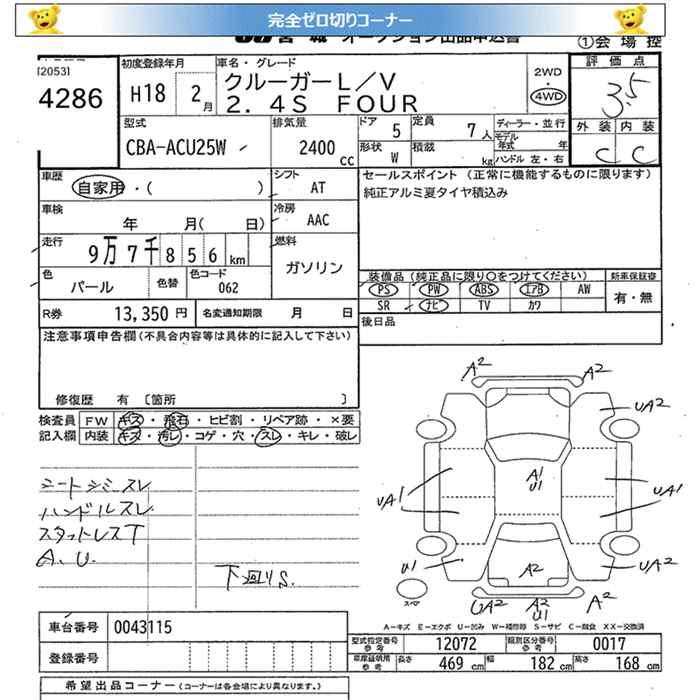 完全ゼロ切りコーナー
宮城 オークション出品申込書
①会場控
[2053]
4286
初度登録年月
H18 2月
車名・グレード
クルーガーL/V
2.4S FOUR
2WD
・
4WD
評価点
3.5
外装 内装
C C
型式
CBA-ACU25W
排気量
2400 cc
ドア 5
定員 7人
形状 W
積載 kg
ディーラー・並行
モデル年式 年
ハンドル 左・右
車歴
自家用・( )
シフト AT
セールスポイント (正常に機能するものに限ります)
純正アルミ夏タイヤ積込み
車検 年 月( 日)
冷房 AAC
走行
9万7千856km
燃料
ガソリン
色
パール
色替
色コード
062
装備品 (純正品に限り○をつけてください)
新車保証書
PS PW ABS エアB AW
有・無
SR ナビ TV カワ
R券 13,350 円
名変通知期限 月 日
後日品
注意事項申告欄 (不具合内容等は具体的に記入して下さい)
修復歴 有 〔箇所 〕
検査員 FW キズ・飛石・ヒビ割・リペア跡・×要
記入欄 内装 キズ・汚レ・コゲ・穴・スレ・キレ・破レ
シートシミスレ
ハンドルスレ
スタットレスT
A.U.
下廻りS.
A2 A2
UA2
A1
U1
UA1 UA1
U1 UA2
A2
UA2 A2 A2
U1
スペア
A-キズ E-エクボ U-凹み W-補修跡 S-サビ C-腐食 XX-交換済
車台番号 0043115
登録番号
型式指定番号 参考 12072
類別区分番号 参考 0017
車庫証明用 参考 長さ 469 cm 幅 182 cm 高さ 168 cm
希望出品コーナー (コーナーは各会場により異なります。)